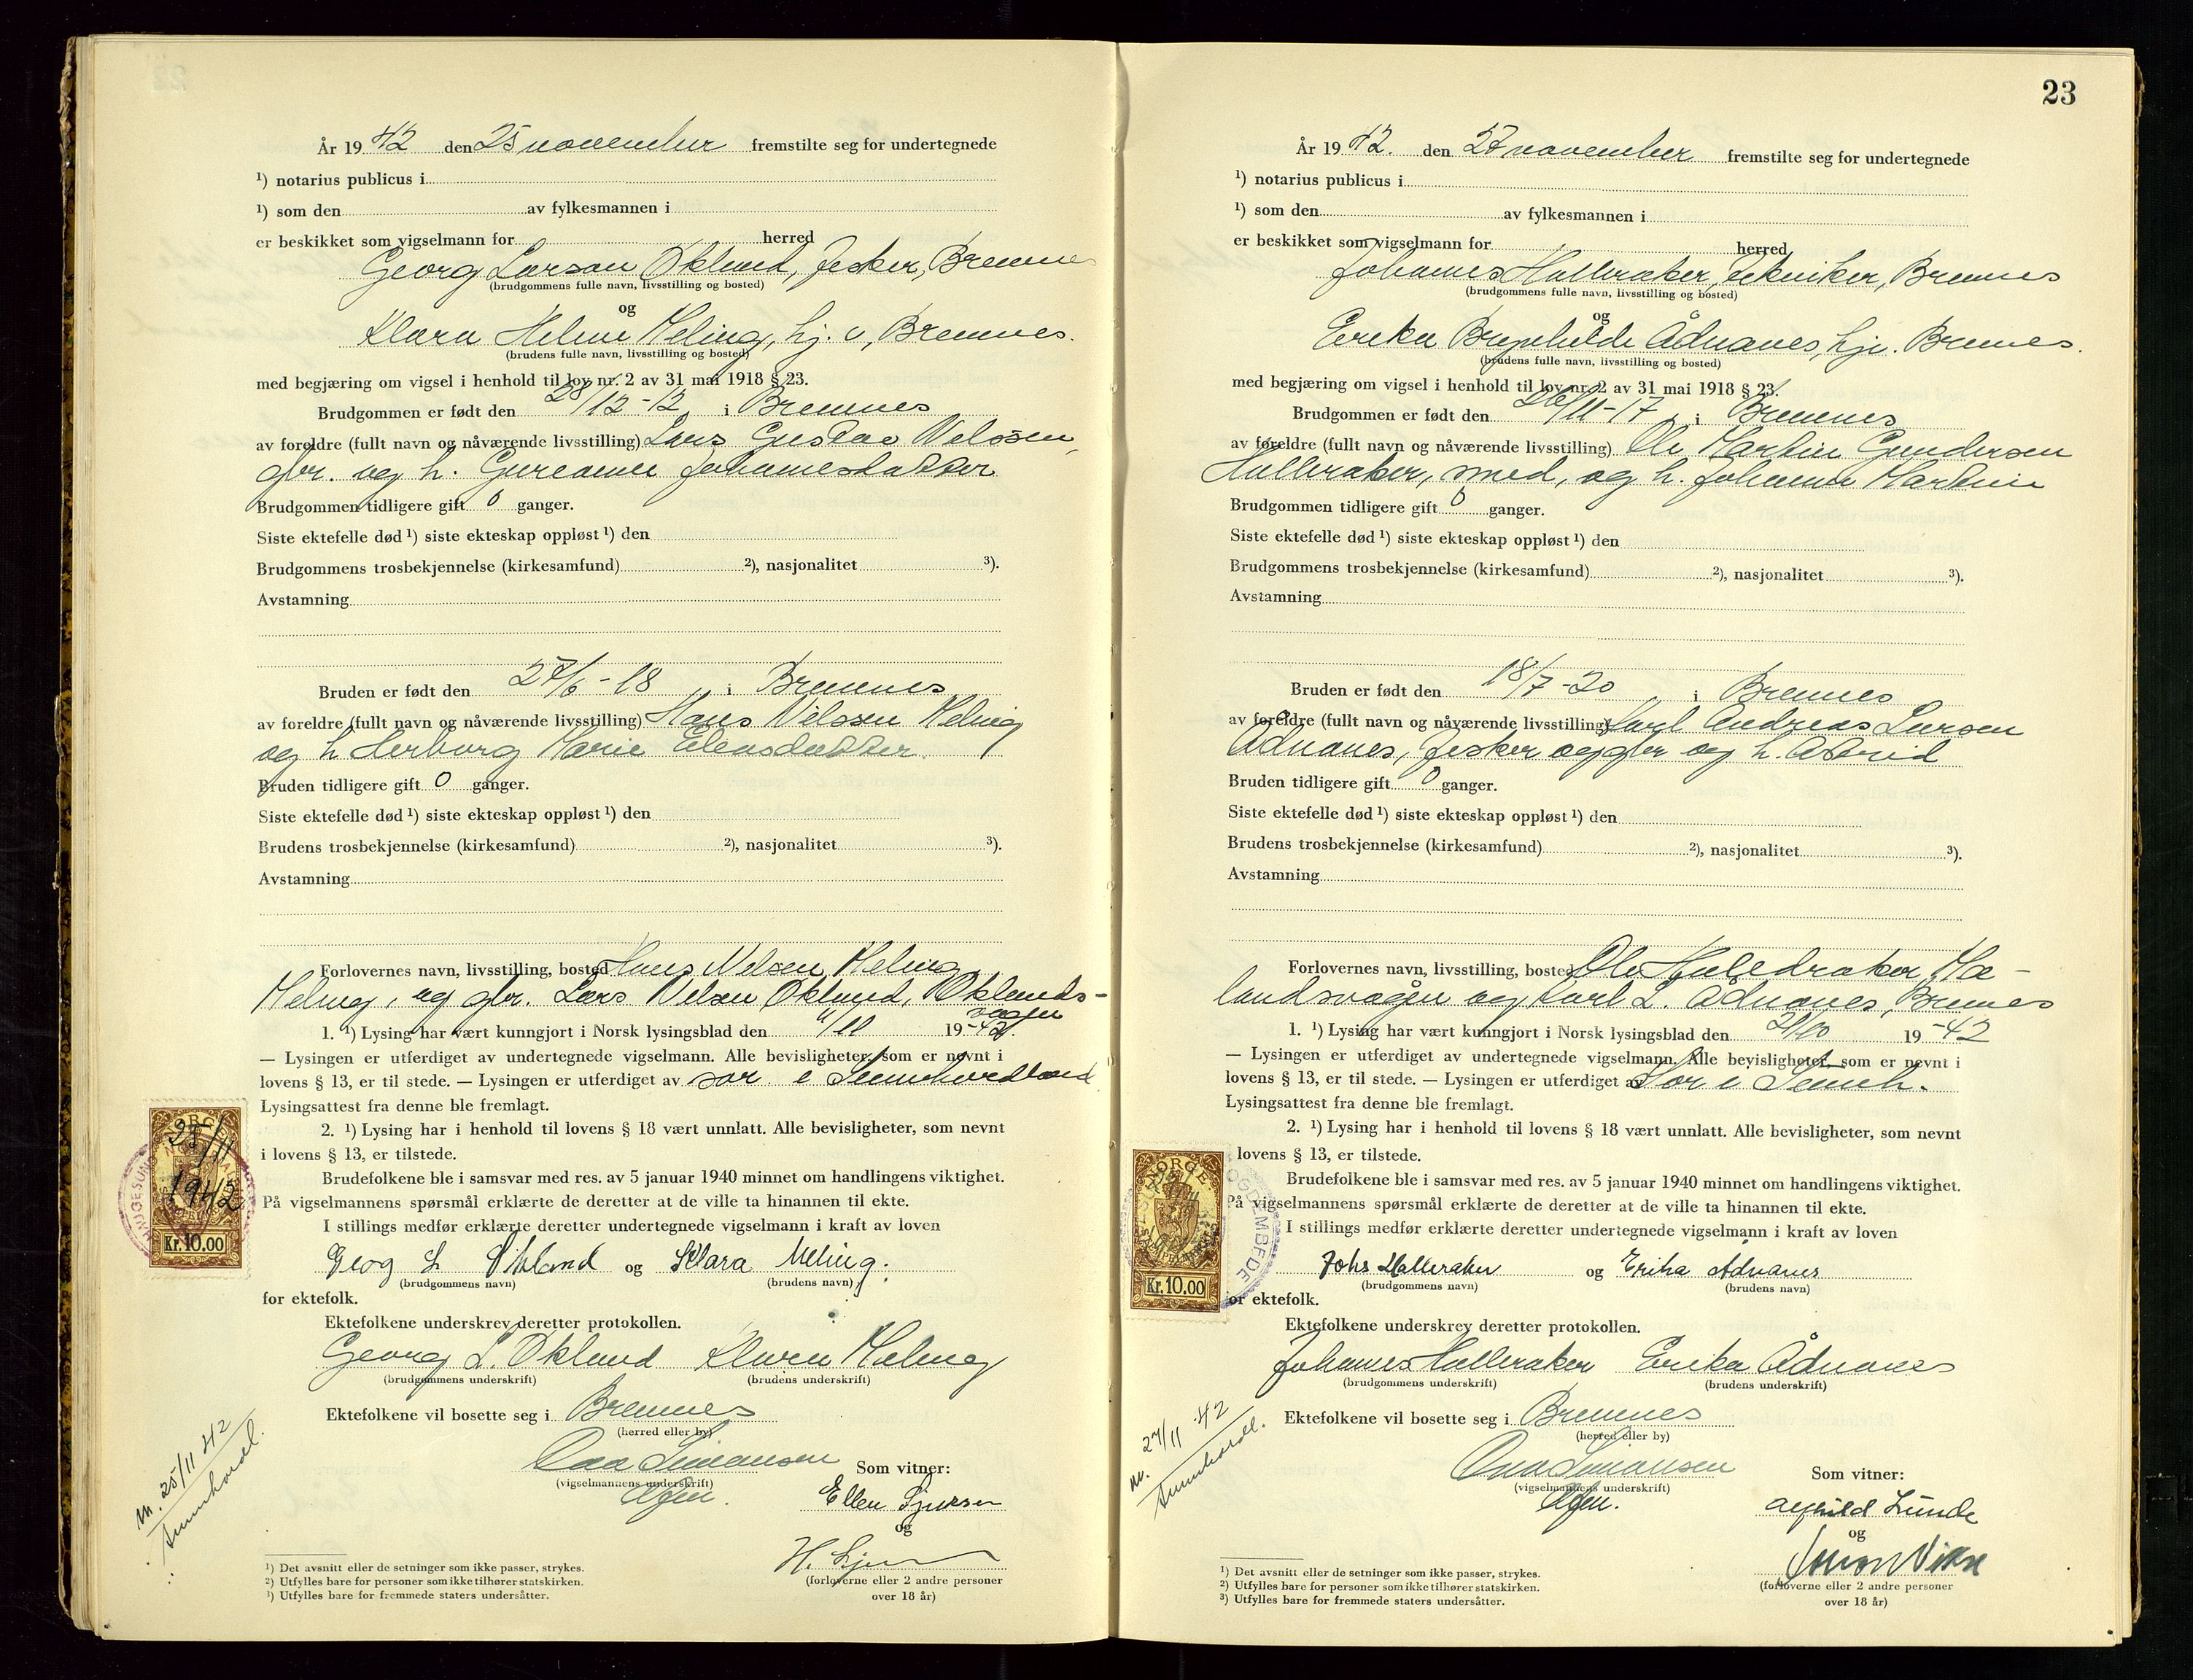 År 1942 den 25 november fremstilte seg for undertegnede
¹) notarius publicus i
¹) som den av fylkesmannen i
er beskikket som vigselmann for herred
Georg Larsen Økland, fisker, Bremnes
(brudgommens fulle navn, livsstilling og bosted)
og
Klara Helene Meling, hj. v, Bremnes.
(brudens fulle navn, livsstilling og bosted)
med begjæring om vigsel i henhold til lov nr. 2 av 31 mai 1918 § 23.
Brudgommen er født den 28/12-12 i Bremnes
av foreldre (fullt navn og nåværende livsstilling) Lars Gustav Nelssen,
gbr. og h. Johannesdatter
Brudgommen tidligere gift 0 ganger.
Siste ektefelle død ¹) siste ekteskap oppløst ¹) den
Brudgommens trosbekjennelse (kirkesamfund) ²), nasjonalitet ³).
Avstamning
Bruden er født den 27/6-18 i Bremnes
av foreldre (fullt navn og nåværende livsstilling) Hans Nilssen Meling
og h. Herborg Marie Eliasdatter
Bruden tidligere gift 0 ganger.
Siste ektefelle død ¹) siste ekteskap oppløst ¹) den
Brudens trosbekjennelse (kirkesamfund) ²), nasjonalitet ³).
Avstamning
Forlovernes navn, livsstilling, bosted Hans Nelsen Meling
Meling, og gbr. Lars Nelsen Økland, Øklands-
vågen
1. ¹) Lysing har vært kunngjort i Norsk lysingsblad den 11 19-42.
— Lysingen er utferdiget av undertegnede vigselmann. Alle bevisligheter, som er nevnt i
lovens § 13, er til stede. — Lysingen er utferdiget av sor. i Sunnhordland
Lysingsattest fra denne ble fremlagt.
2. ¹) Lysing har i henhold til lovens § 18 vært unnlatt. Alle bevisligheter, som nevnt
i lovens § 13, er tilstede.
Brudefolkene ble i samsvar med res. av 5 januar 1940 minnet om handlingens viktighet.
På vigselmannens spørsmål erklærte de deretter at de ville ta hinannen til ekte.
I stillings medfør erklærte deretter undertegnede vigselmann i kraft av loven
Georg L Økland og Klara Meling.
(brudgommens navn) (brudens navn)
for ektefolk.
Ektefolkene underskrev deretter protokollen.
Georg L. Økland Klara Meling
(brudgommens underskrift) (brudens underskrift)
Ektefolkene vil bosette seg i Bremnes
(herred eller by)
Simonsen Som vitner:
(vigselmannens underskrift)
Ellen
og
H.
(forloverne eller 2 andre personer
over 18 år)
¹) Det avsnitt eller de setninger som ikke passer, strykes.
²) Utfylles bare for personer som ikke tilhører statskirken.
³) Utfylles bare for fremmede staters undersåtter.
NORGE
25/11
1942
Kr. 10.00
m. 25/11 42
Sunnhordl.
23
År 1942. den 27 november fremstilte seg for undertegnede
¹) notarius publicus i
¹) som den av fylkesmannen i
er beskikket som vigselmann for herred
Johannes Halleraker, tekniker, Bremnes
(brudgommens fulle navn, livsstilling og bosted)
og
Erika Brynhilde Ådnanes, hjv. Bremnes.
(brudens fulle navn, livsstilling og bosted)
med begjæring om vigsel i henhold til lov nr. 2 av 31 mai 1918 § 23.
Brudgommen er født den 26/11-17, i Bremnes
av foreldre (fullt navn og nåværende livsstilling) Ole Martin Gundersen
Halleraker, smed, og h. Johanna Martine
Brudgommen tidligere gift 0 ganger.
Siste ektefelle død ¹) siste ekteskap oppløst ¹) den
Brudgommens trosbekjennelse (kirkesamfund) ²), nasjonalitet ³).
Avstamning
Bruden er født den 18/7-20, i Bremnes
av foreldre (fullt navn og nåværende livsstilling) Karl Andreas Larsen
Ådnanes, fisker og gbr og h. Astrid
Bruden tidligere gift 0 ganger.
Siste ektefelle død ¹) siste ekteskap oppløst ¹) den
Brudens trosbekjennelse (kirkesamfund) ²), nasjonalitet ³).
Avstamning
Forlovernes navn, livsstilling, bosted Ole Halleraker, Mæ-
landsvågen og Karl L. Ådnanes, Bremnes
1. ¹) Lysing har vært kunngjort i Norsk lysingsblad den 21/10 19-42
— Lysingen er utferdiget av undertegnede vigselmann. Alle bevisligheter, som er nevnt i
lovens § 13, er til stede. — Lysingen er utferdiget av Sor i Sunnh.
Lysingsattest fra denne ble fremlagt.
2. ¹) Lysing har i henhold til lovens § 18 vært unnlatt. Alle bevisligheter, som nevnt
lovens § 13, er tilstede.
Brudefolkene ble i samsvar med res. av 5 januar 1940 minnet om handlingens viktighet.
På vigselmannens spørsmål erklærte de deretter at de ville ta hinannen til ekte.
I stillings medfør erklærte deretter undertegnede vigselmann i kraft av loven
Johs Halleraker og Erika Ådnanes
(brudgommens navn) (brudens navn)
for ektefolk.
Ektefolkene underskrev deretter protokollen.
Johannes Halleraker Erika Ådnanes
(brudgommens underskrift) (brudens underskrift)
Ektefolkene vil bosette seg i Bremnes
(herred eller by)
Simonsen Som vitner:
(vigselmannens underskrift)
Alfhild Lunde
og
(forloverne eller 2 andre personer
over 18 år)
¹) Det avsnitt eller de setninger som ikke passer, strykes.
²) Utfylles bare for personer som ikke tilhører statskirken.
³) Utfylles bare for fremmede staters undersåtter.
NORGE
Kr. 10.00
m. 27/11 42
Sunnhordl.